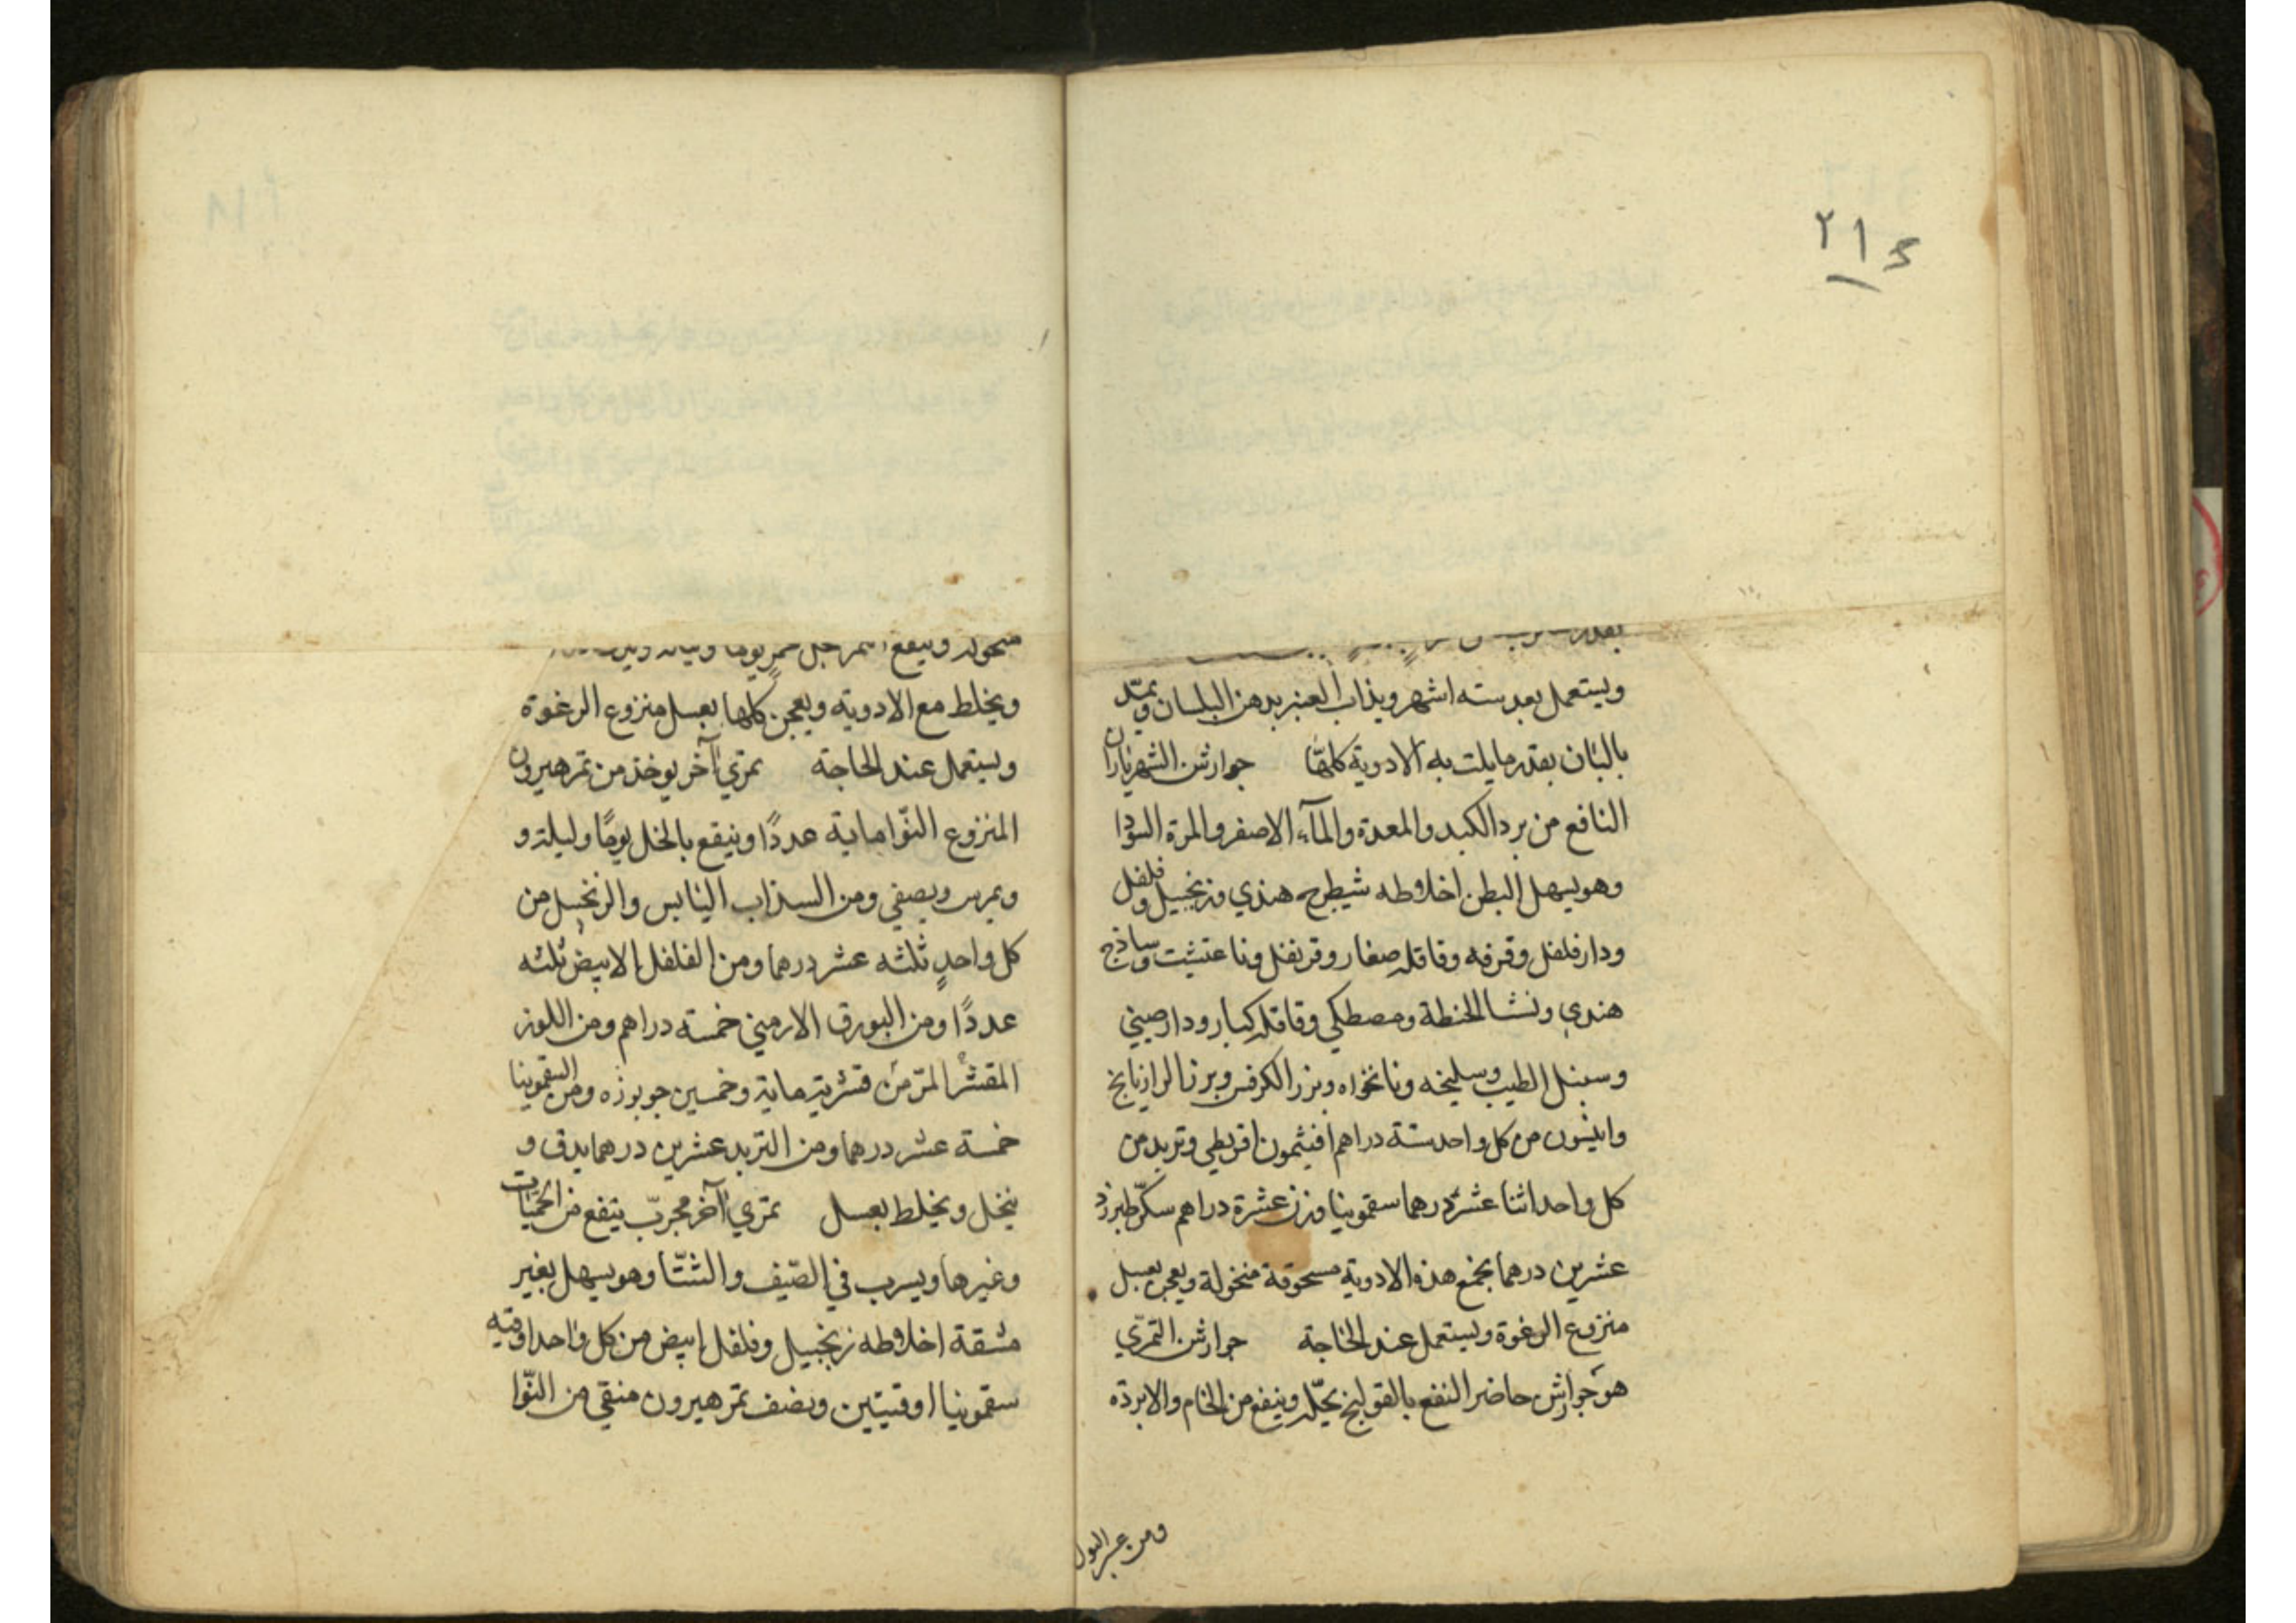 ٢١٤
ويستعمل بعد سته اشهر ويذاب العنبر بدهن البلسان ويمدّ
بالبان بقدر ما يلت به الادوية كلها جوارشن الشهرياران
النافع من برد الكبد والمعدة والمآء الاصفر والمرة السودا
وهو يسهل البطن اخلاطه شيطرج هندي وزنجبيل وفلفل
ودارفلفل وقرفه وقاقله صغار وقرنفل ونا وساذج
هندي ونشا الحنطة ومصطكي وقاقله كبار ودارصيني
وسنبل الطيب وسليخه ونانخواه وبزر الكرفس وبزر الرازيانج
وانيسون من كل واحد ستة دراهم افيثمون اقريطي وتربد من
كل واحد اثنا عشر درهما سقمونيا وزن عشرة دراهم سكّر طبرزد
عشرين درهما يجمع هذه الادوية مسحوقة منخولة ويعجن بعسل
منزوع الرغوة ويستعمل عند الحاجة جوارشن التمري
هو جوارش حاضر النفع بالقولنج يحلّه وينفع من الخام والابردة
ومن عسر البول
منخوله وينقع خمر يوما وليلة
ويخلط مع الادوية ويعجن كلها بعسل منزوع الرغوة
ويستعمل عند الحاجة تمري آخر يوخذ من تمر هيرون
المنزوع النّوا ماية عددًا وينقع بالخل يومًا وليلة و
ويمرس ويصفي ومن السذاب اليابس والزنجبيل من
كل واحدٍ ثلثه عشر درهما ومن الفلفل الابيض ثلثه
عددًا ومن البورق الارميني خمسة دراهم ومن اللوز
المقشر المرّ من قشريه ماية وخمسين جوبوزه ومن السقمونيا
خمسة عشر درهما ومن التربد عشرين درهما يدق و
ينخل ويخلط بعسل تمري آخر مجربّ ينفع من الحمّيات
وغيرها ويسرب في الصّيف والشتّا وهو يسهل بغير
مشقة اخلاطه زنجبيل وفلفل ابيض من كل واحد اوقيه
سقمونيا اوقيتين ونصف تمر هيرون منقي من النّوا